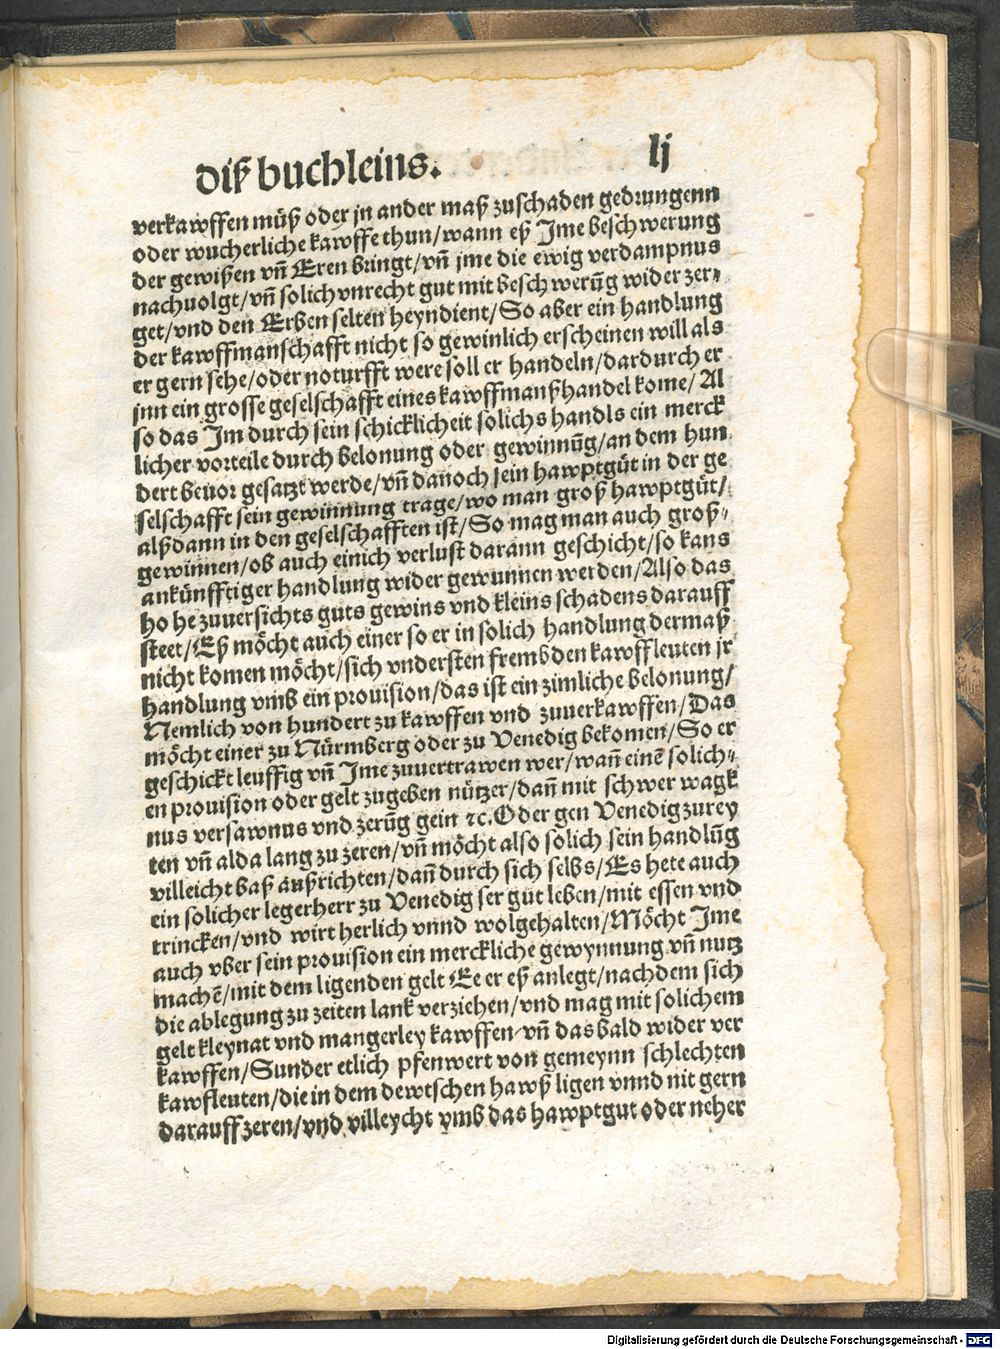 diß buchleins. lj
verkawffen müß oder jn ander maß zuschaden gedrungenn
oder wucherliche kawffe thun/wann eß Jme beschwerung
der gewißen vn̄ Eren bringt/vn̄ jme die ewig verdampnus
nachuolgt/vn̄ solich vnrecht gut mit beschwerūg wider zer⸗
get/vnd den Erben selten heyndient/So aber ein handlung
der kawffmanschafft nicht so gewinlich erscheinen will als
er gern sehe/oder noturfft were soll er handeln/dardurch er
jnn ein grosse geselschafft eines kawffmanßhandel kome/Al
so das Jm durch sein schicklicheit solichs handls ein merck
licher vorteile durch belonung oder gewinnūg/an dem hun
dert beuor gesatzt werde/vn̄ danoch sein hawptgüt in der ge
selschafft sein gewinnung trage/wo man groß hawptgüt/
alßdann in den geselschafften ist/So mag man auch groß⸗
gewinnen/ob auch einich verlust darann geschicht/so kans
ankünfftiger handlung wider gewunnen werden/Also das
ho he zuuersichts guts gewins vnd kleins schadens darauff
steet/Eß möcht auch einer so er in solich handlung dermaß
nicht komen möcht/sich vndersten frembden kawffleuten jr
handlung vmb ein prouision/das ist ein zimliche belonung/
Nemlich von hundert zu kawffen vnd zuuerkawffen/Das
möcht einer zu Nürmberg oder zu Venedig bekomen/So er
geschickt leuffig vn̄ Jme zuuertrawen wer/wan̄ einē solich⸗
en prouision oder gelt zugeben nützer/dan̄ mit schwer wagk
nus versawnus vnd zerūg gein ⁊c. Oder gen Venedig zurey
ten vn̄ alda lang zu zeren/vn̄ möcht also solich sein handlūg
villeicht baß außrichten/dan̄ durch sich selbs/Es hete auch
ein solicher legerherr zu Venedig ser güt leben/mit essen vnd
trincken/vnd wirt herlich vnnd wolgehalten/Möcht Jme
auch vber sein prouision ein merckliche gewynnung vn̄ nutz
machē/mit dem ligenden gelt Ee er eß anlegt/nachdem sich
die ablegung zu zeiten lank verziehen/vnd mag mit solichem
gelt kleynat vnd mangerley kawffen vn̄ das bald wider ver
kawffen/Sunder etlich pfenwert von gemeynn schlechten
kawfleuten/die in dem dewtschen hawß ligen vnnd nit gern
darauff zeren/vnd villeycht vmb das hawptgut oder neher
Digitalisierung gefördert durch die Deutsche Forschungsgemeinschaft - DFG